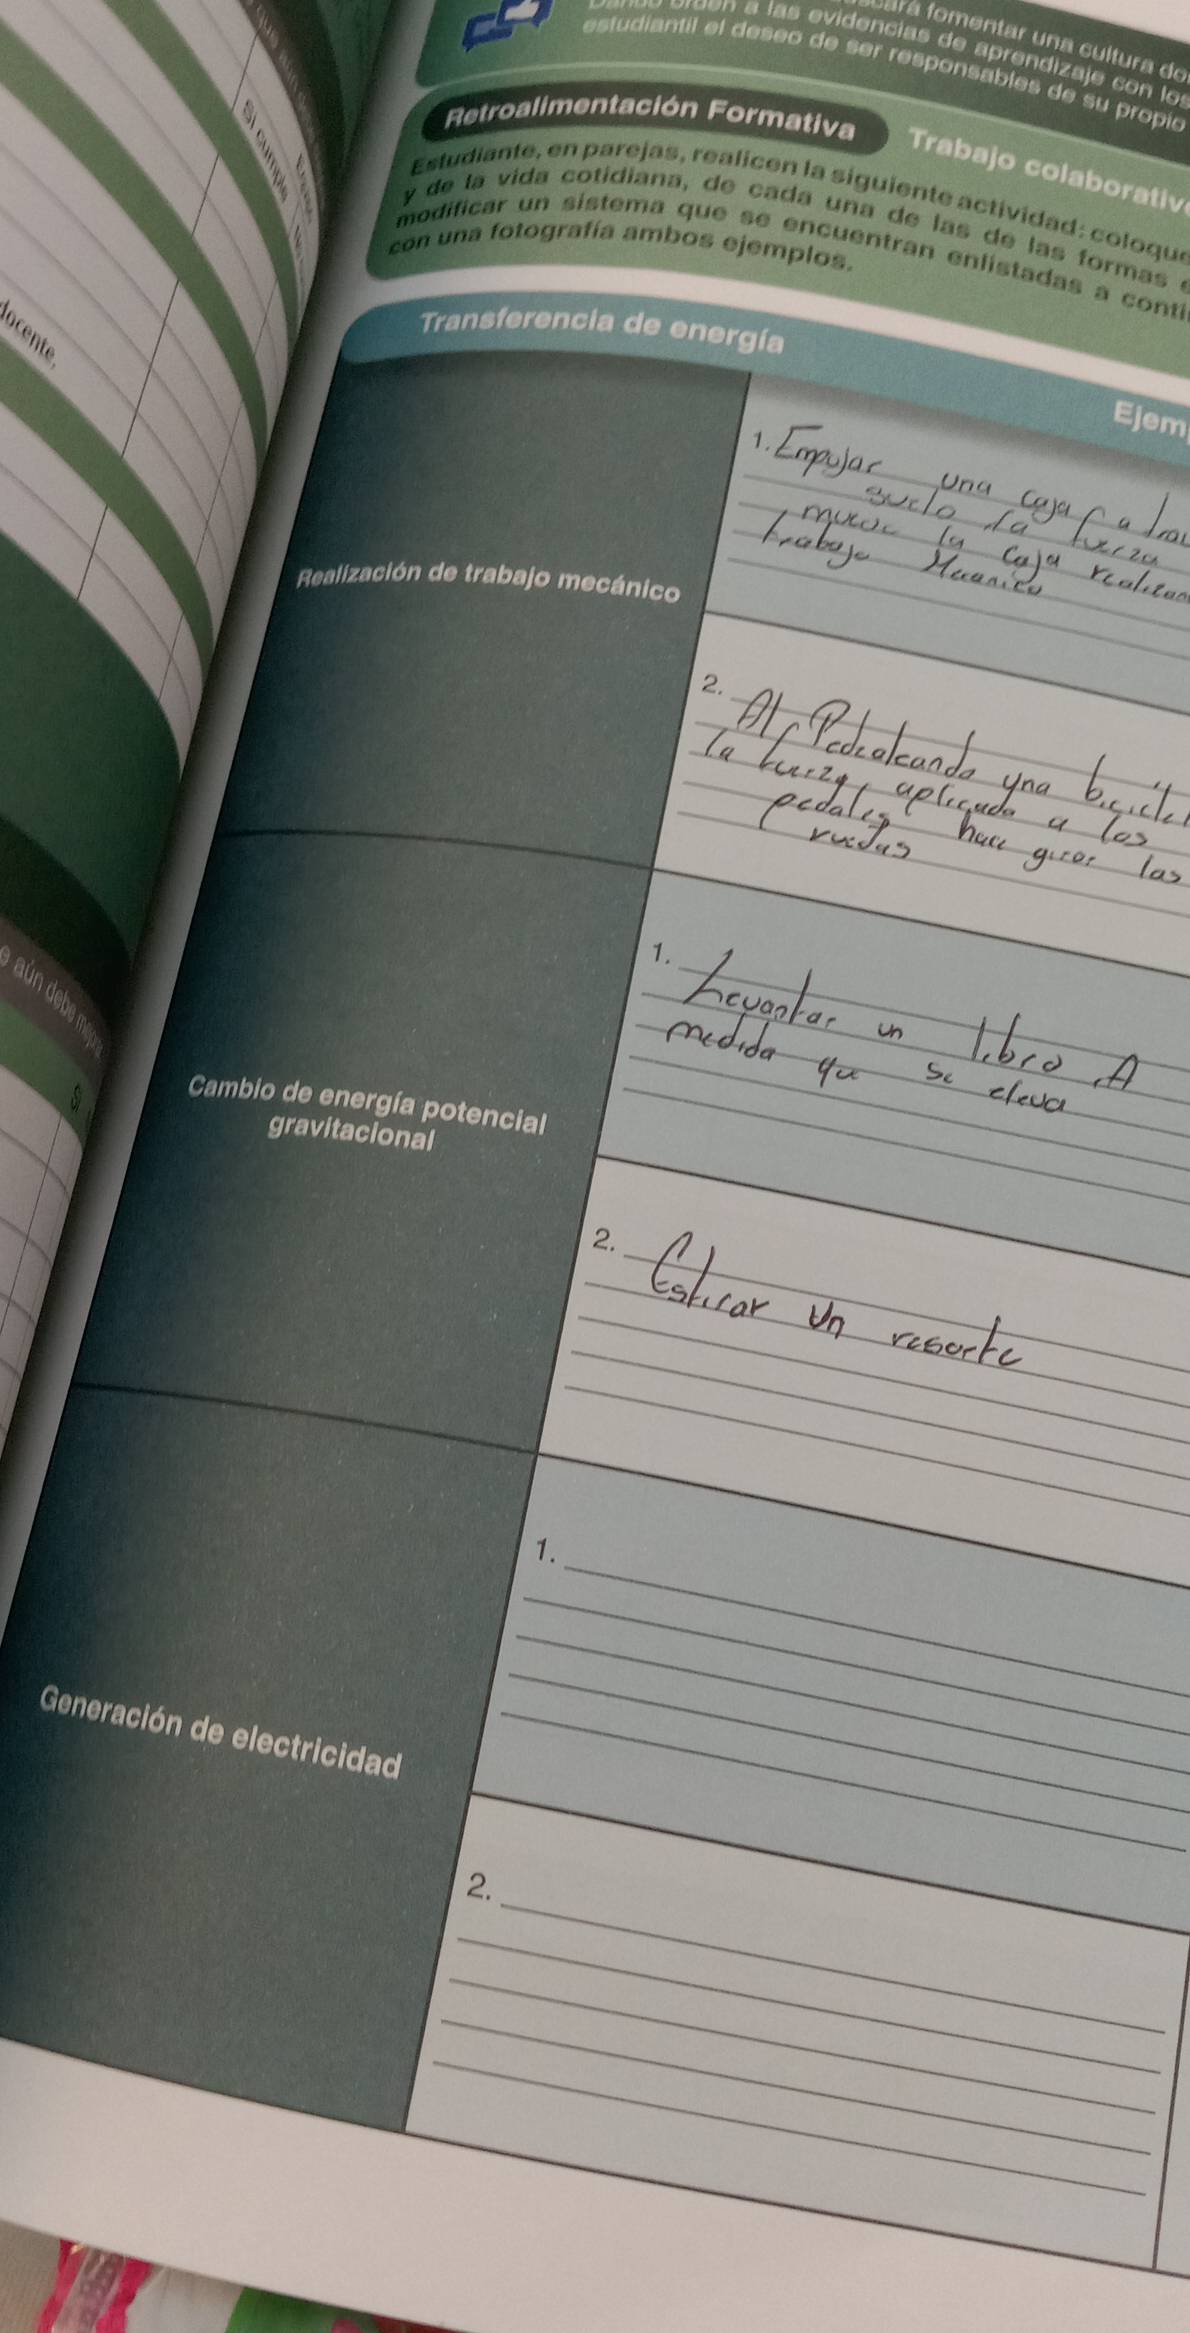 fomentar una cultura de
a las evidencias de aprendizaje con los
estudiantil el deseo de ser responsables de su propio
Retroalimentación Formativa
Trabajo colaborativ
Estudiante, en parejas, realicen la siguiente actividad: coloque
y de la vida cotidiana, de cada una de las de las formas
modificar un sistema que se encuentran enlistadas a conti
con una fotografía ambos ejemplos.
Si cumple
docente,
e aún debe mejorar
Si
Transferencia de energía
Ejem
Realización de trabajo mecánico
1. Empujar una caja a
suelo la fuerza
mueve la caja realizan
trabajo Mecanico
2. Al Pedealeando una bicicle
la fuerza aplicada a los
pedales hace girar las
ruedas
Cambio de energía potencial
gravitacional
1. Levantar un libro A
medida que se eleva
2. Estirar un resorte
Generación de electricidad
1.
2.